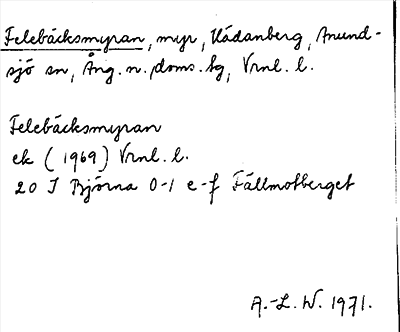 Felebäcksmyran, myr, Kådanberg, Anund-
sjö sn, Ång. n. doms. bg, Vrnl. l.
Felebäcksmyran
ek (1969) Vrnl. l.
20 J Björna 0-1 e-f Fällmotberget
A.-L. W. 1971.